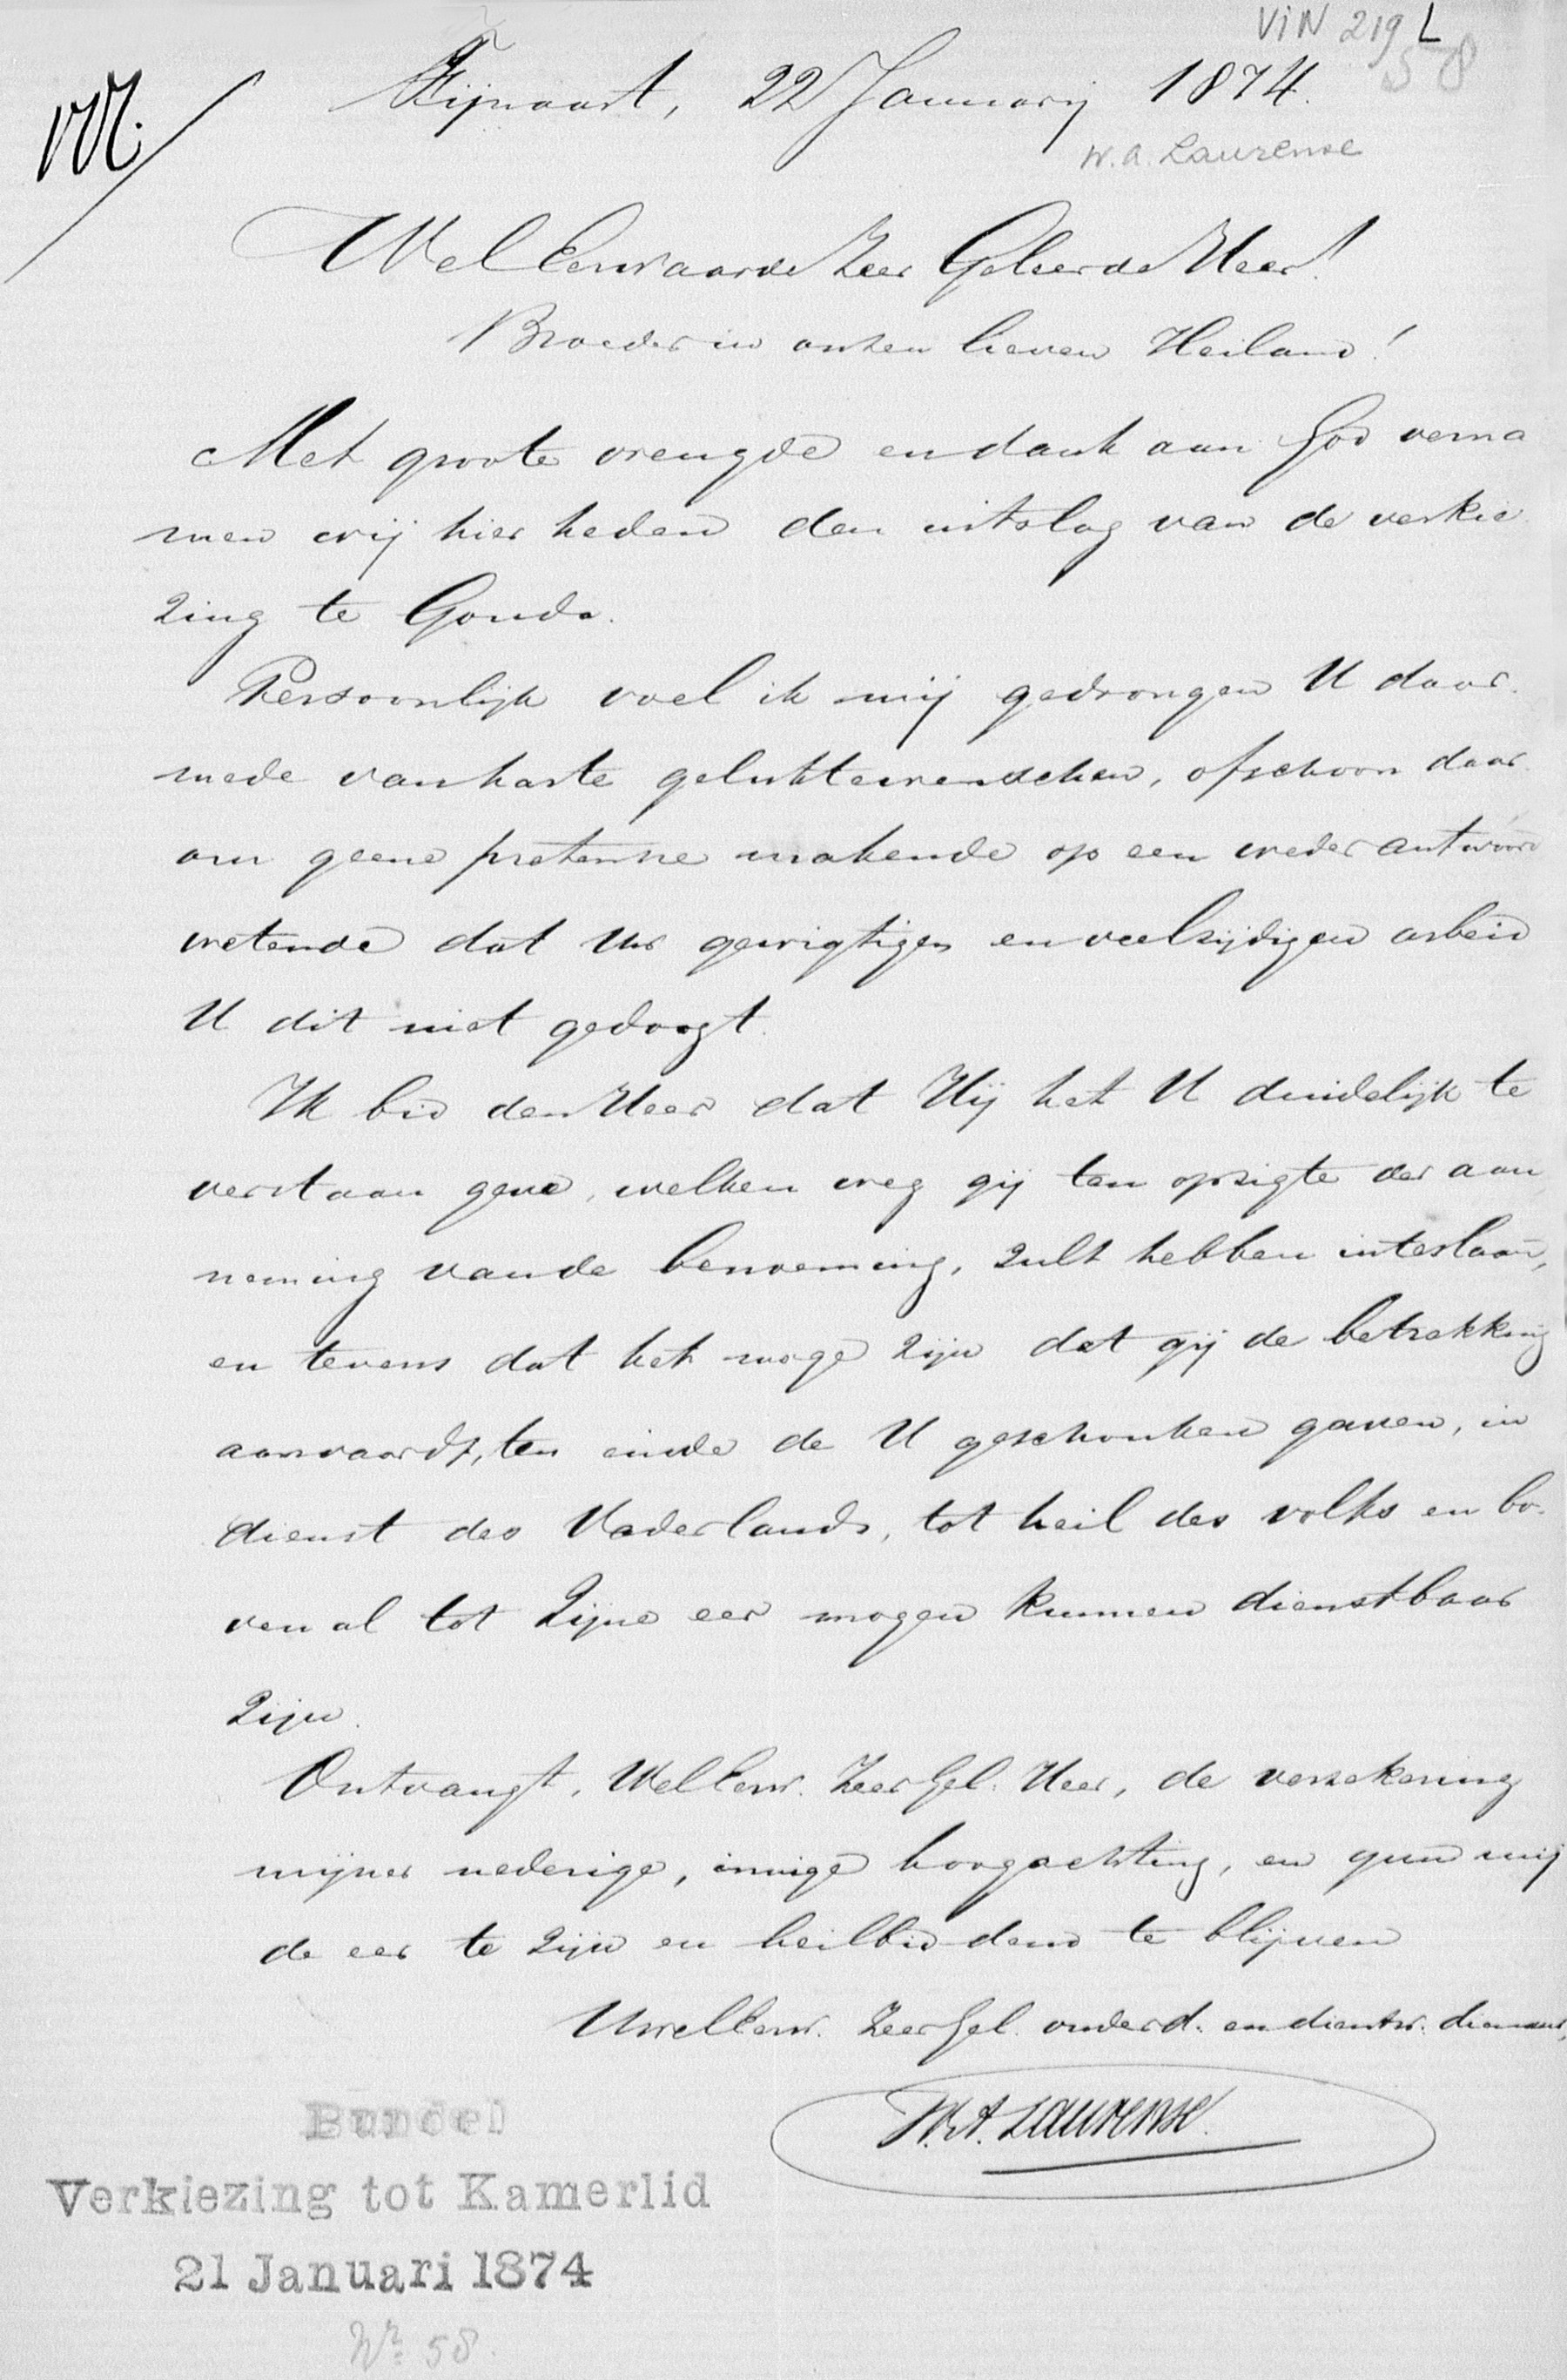 VIN 219 L
58
Fijnaart, 22 Januarij 1874.
W.A. Laurense
WelEerwaarde Zeer Geleerde Heer!
Broeder in onzen lieven Heiland!
Met groote vreugde en dank aan God verna
men wij hier heden den uitslag van de verkie
zing te Gouda.
Persoonlijk voel ik mij gedrongen U daar
mede van harte geluk te wenschen, ofschoon daar
om geene pretensie makende op een weder antwoord
wetende dat Uw gewigtigen en veelzijdigen arbeid
U dit niet gedoogt.
Ik bid den Heer dat Hij het U duidelijk te
verstaan geve, welken weg gij ten opzigte der aan
neming van de benoeming, zult hebben inteslaan,
en tevens dat het moge zijn dat gij de betrekking
aanvaardt, ten einde de U geschonken gaven, in
dienst des Vaderlands, tot heil des volks en bo-
ven al tot Zijne eer mogen kunnen dienstbaar
zijn.
Ontvangt, WelEerw. ZeerGel. Heer, de verzekering
mijner nederige, innige hoogachting, en gun mij
de eer te zijn en heilbiddend te blijven
UwelEerw. ZeerGel. onderd. en dienstw. dienaar,
W.A. Laurense.
Bundel
Verkiezing tot Kamerlid
21 Januari 1874
Nr. 58.